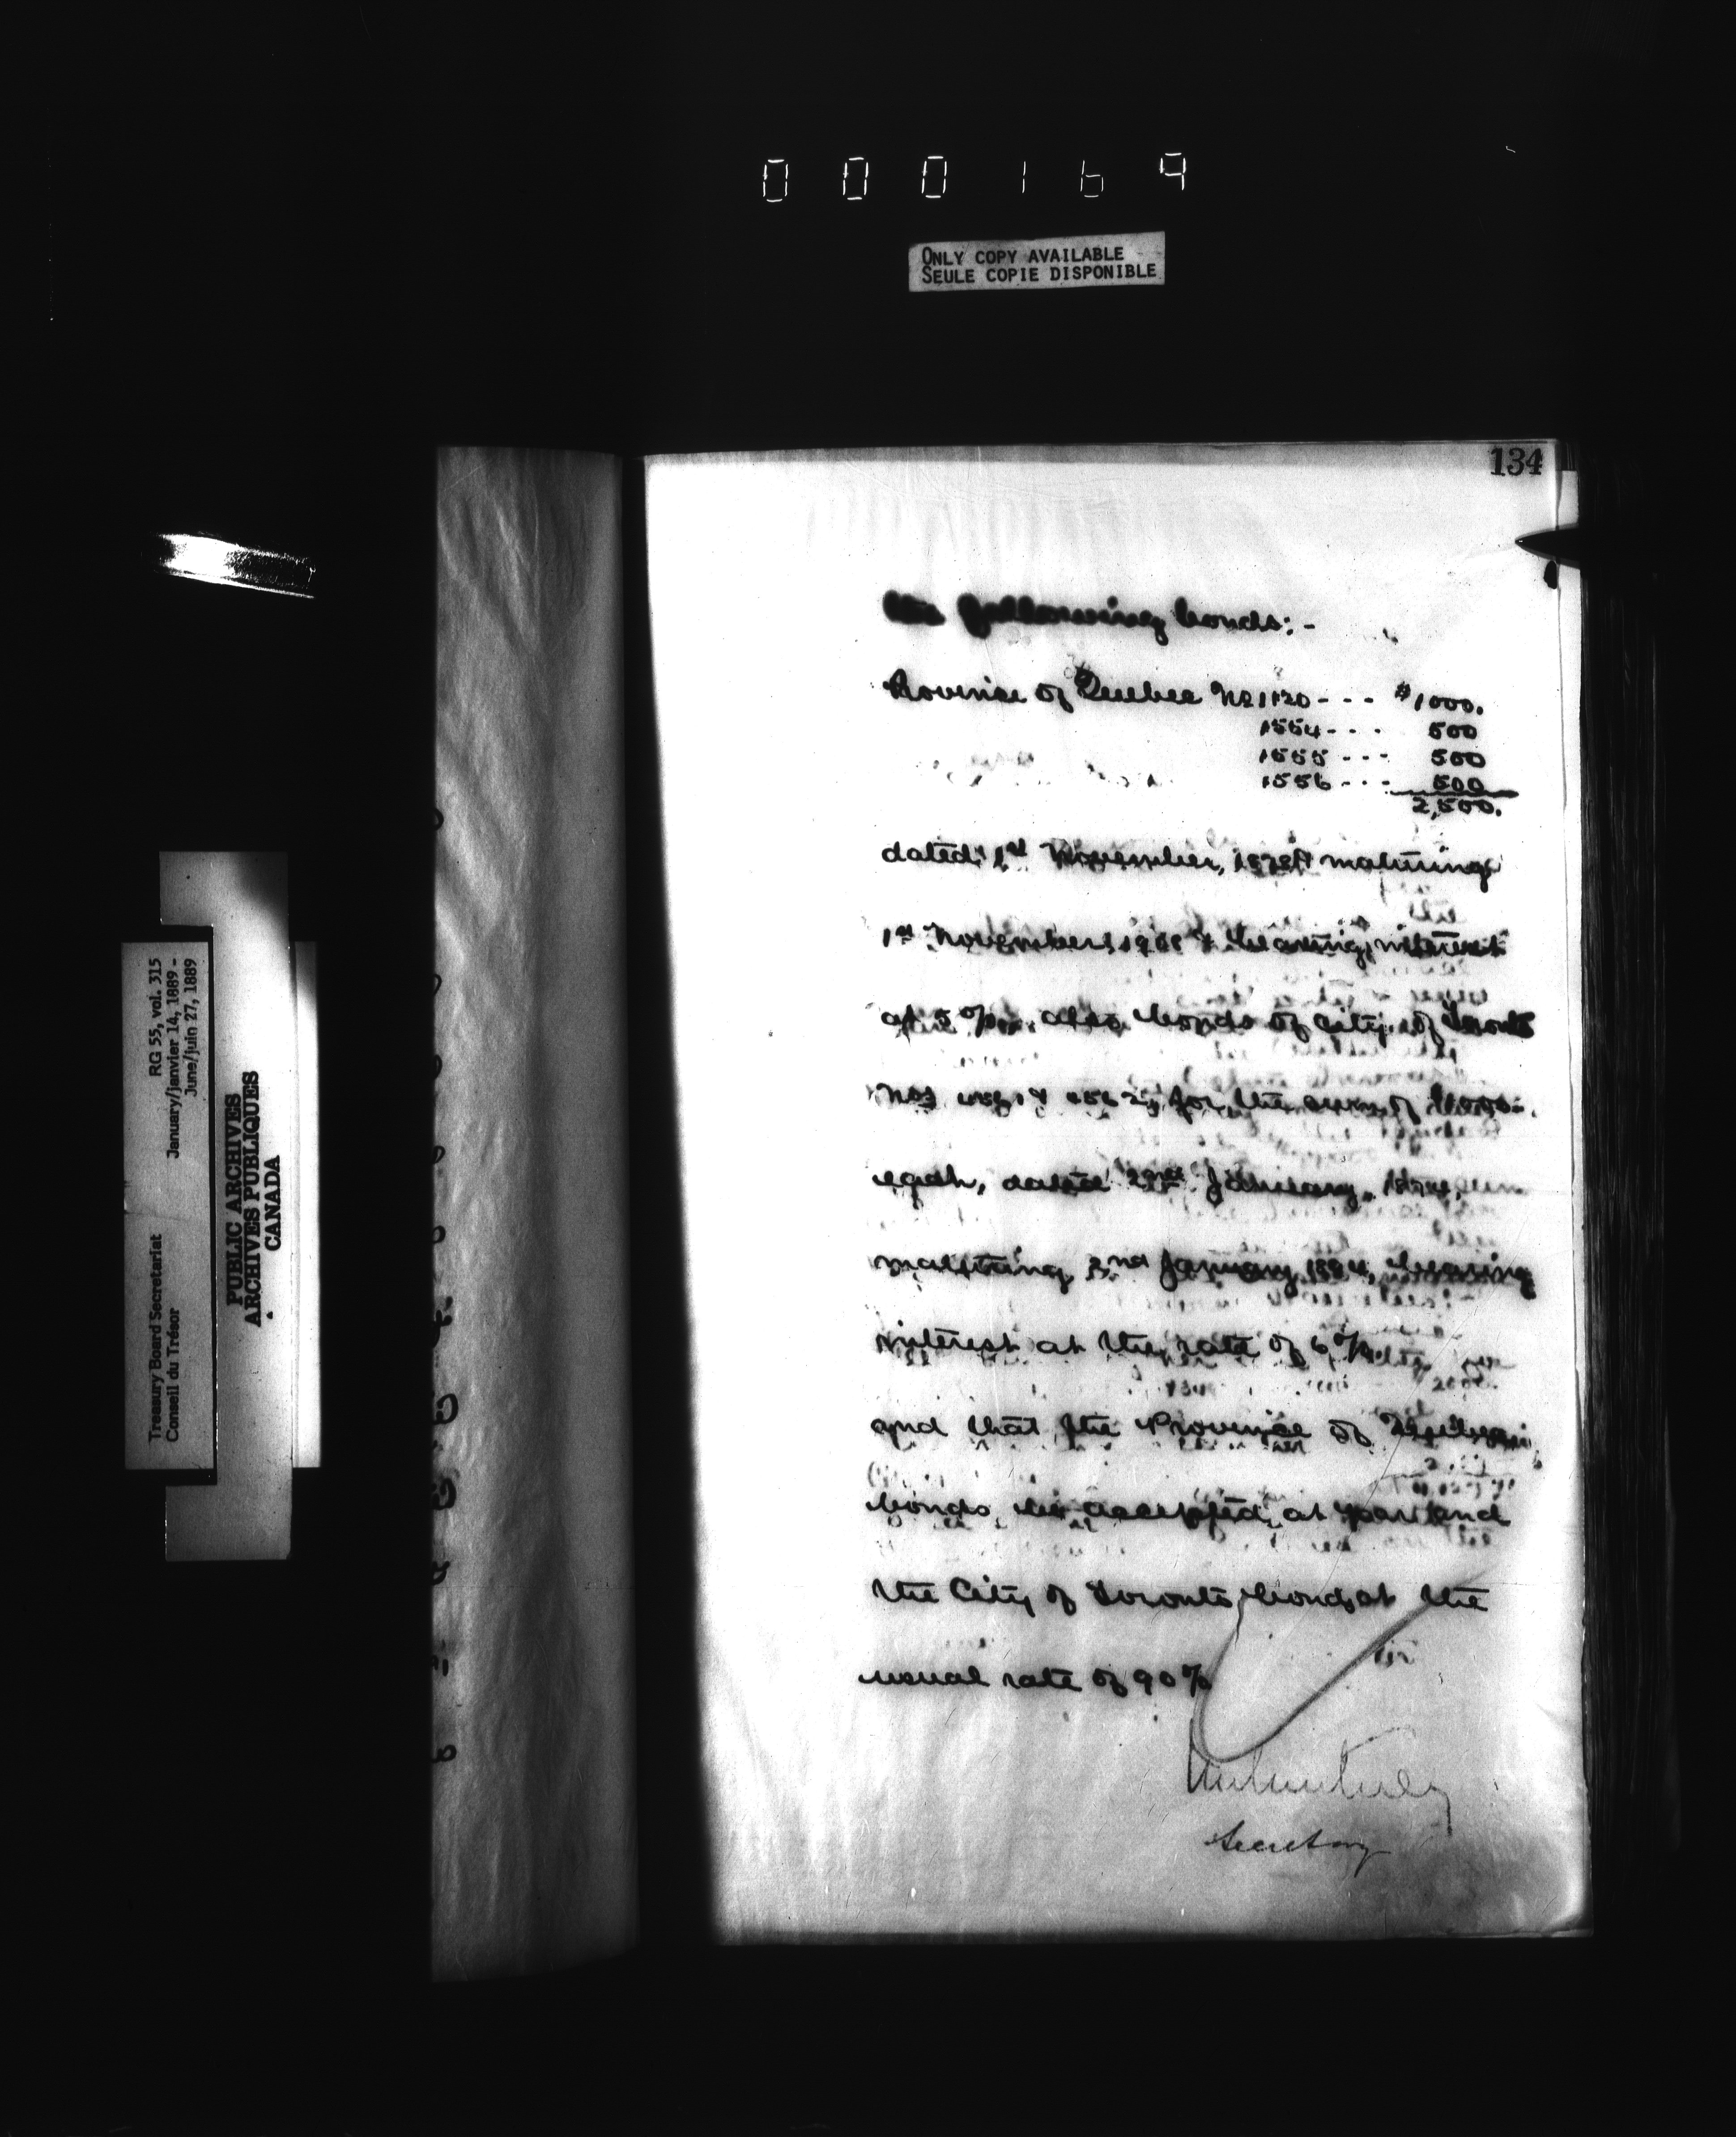 000169
ONLY COPY AVAILABLE
SEULE COPIE DISPONIBLE
134
the following bonds:-
Province of Quebec No 1120 --- $1000.
1554 --- 500
1555 --- 500
1556 --- 500
2,500.
dated 1st November, maturing
1st November 1908 & bearing interest
at 5 %. also bonds of City of Toronto
Nos for the sum of $1000.
each, dated January,
maturing 2nd January 1894, bearing
interest at the rate of 6 %.
and that the Province of Quebec
bonds be accepted at par and
the City of Toronto bonds at the
usual rate of 90%
Secretary
Treasury Board Secretariat RG 55, vol. 315
Conseil du Trésor January/janvier 14, 1889 -
June/juin 27, 1889
PUBLIC ARCHIVES
ARCHIVES PUBLIQUES
CANADA